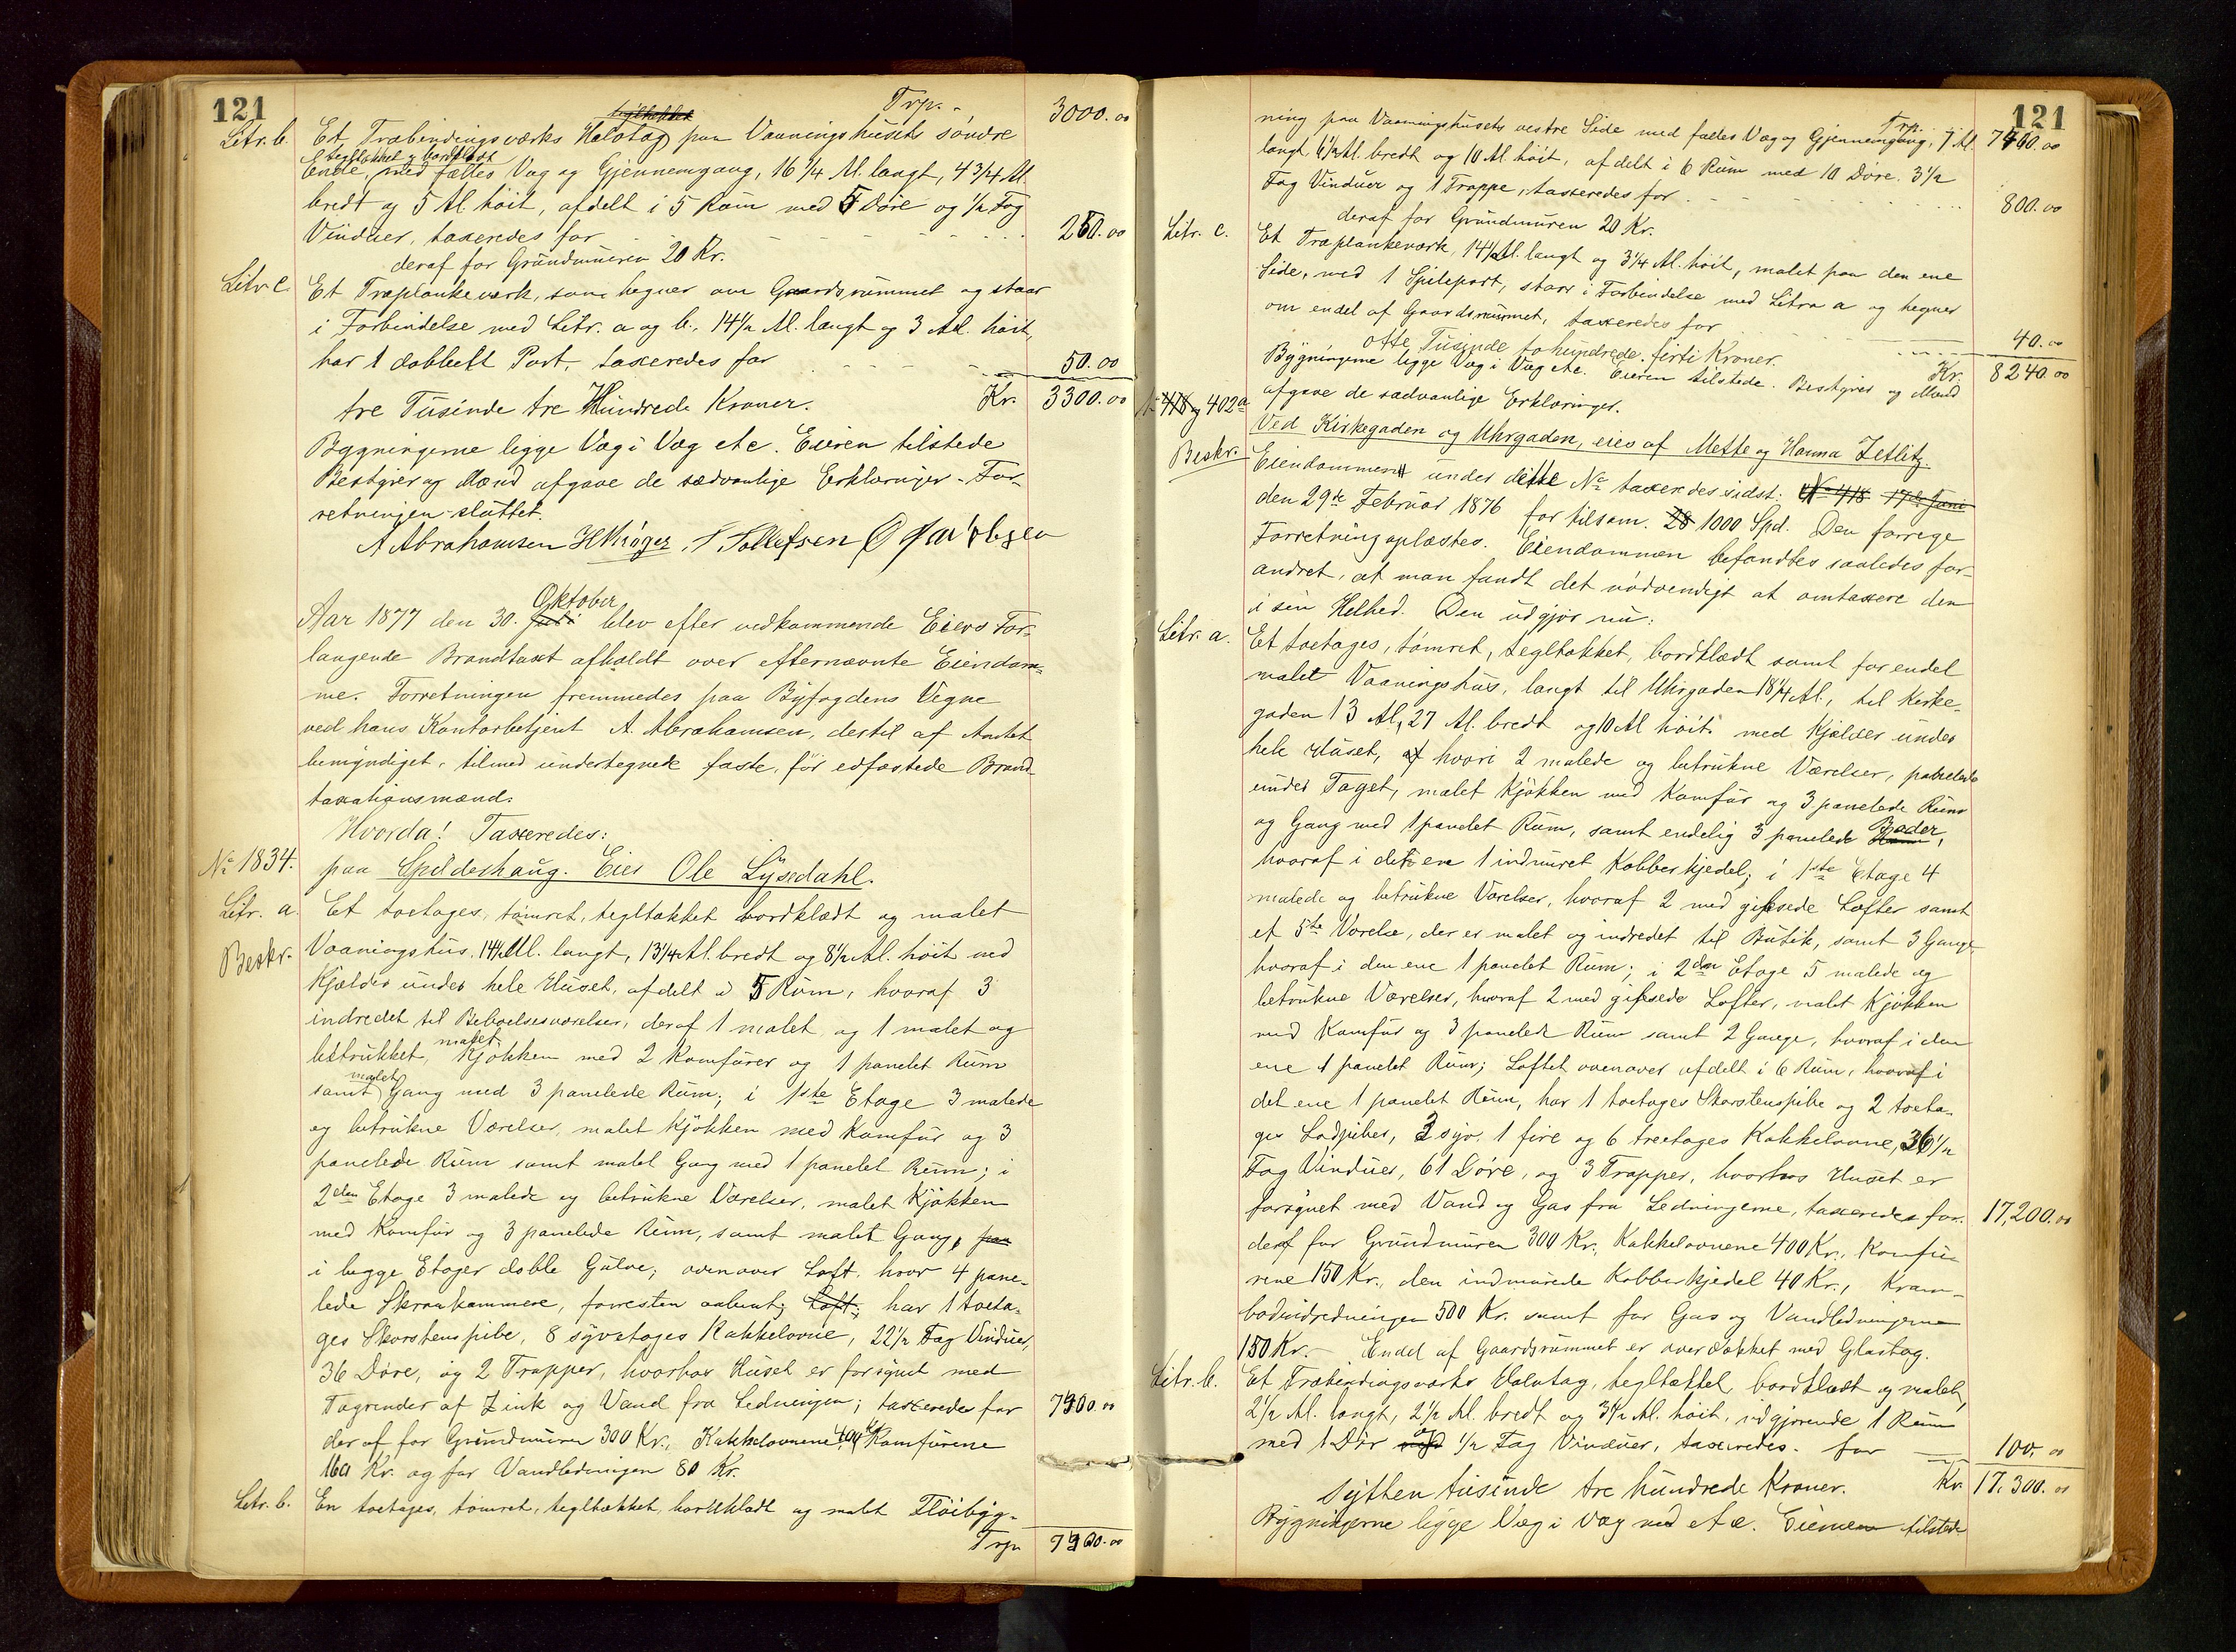 121
Trp. - 3000.00
Litr. b. Et Træbindingsværks Halvtag paa Vaaningshusets søndre
tegltækket og bordklædt
Ende, med fælles Væg og Gjennemgang, 16 1/4 Al. langt, 4 3/4 Al.
bredt og 5 Al. höit, afdelt i 5 Rum med 5 Döre og 1/2 Fag
Vinduer, taxeredes for 250.00
deraf for Grundmuren 20 Kr.
Litr. c. Et Træplankeværk, som hegner om Gaardsrummet og staar
i Forbindelse med Litr. a og b., 14 1/2 Al. langt og 3 Al. höit,
har 1 dobbelt Port, taxeredes for 50.00
tre Tusinde tre Hundrede Kroner. Kr. 3300.00
Bygningerne ligge Væg i Væg etc. Eieren tilstede
Bestyrer og Mænd afgave de sædvanlige Erklæringer. For-
retningen sluttet.
A Abrahamsen H Kröger S Sollefsen O Jacobsen
Oktober
Aar 1877 den 30. Juli blev efter vedkommende Eiers For-
langende Brandtaxt afholdt over efternævnte Eiendom-
me. Forretningen fremmedes paa Byfogdens Vegne
ved hans Kontorbetjent A. Abrahamsen, dertil af Amtet
bemyndiget, tilmed undertegnede faste, för edfæstede Brand-
taxationsmænd.
Hvorda! Taxeredes:
No 1834. paa Spilderhaug. Eier Ole Lysedahl.
Litr. a. Et toetages, tömret, tegltækket bordklædt og malet
Beskr. Vaaningshus, 14 1/2 Al. langt, 13 1/4 Al. bredt og 8 1/2 Al. höit med
Kjælder under hele Huset, afdelt i 5 Rum, hvoraf 3
indredet til Beboelsesværelser, deraf 1 malet og 1 malet og
malet
betrukket, Kjökken med 2 Komfurer og 1 panelet Rum
malet
samt Gang med 3 panelede Rum; i 1ste Etage 3 malede
og betrukne Værelser, malet Kjökken med Komfur og 3
panelede Rum samt malet Gang med 1 panelet Rum; i
2den Etage 3 malede og betrukne Værelser, malet Kjökken
med Komfur og 3 panelede Rum, samt malet Gang, paa
i begge Etager doble Gulve; ovenover Loft, hvor 4 pane-
lede Skraakammere, forresten aabent; Loft; har 1 toeta-
ges Skorstenspibe, 8 syvetages Kakkelovne, 22 1/2 Fag Vinduer,
36 Döre, og 2 Trapper, hvorhos Huset er forsynet med
Tagrender af Zink og Vand fra Ledningen; taxeredes for 7400.00
deraf for Grundmuren 300 Kr., Kakkelovnene 400 Kr Komfurene
160 Kr. og for Vandledningen 80 Kr.
Litr. b. En toetages, tömret, tegltækket, bordklædt og malet Flöibyg-
Trp 7400.00
121
Trp. 7400.00
ning paa Vaaningshusets vestre Side med fælles Væg og Gjennemgang, 7 Al.
langt, 6 1/2 Al. bredt og 10 Al höit, afdelt i 6 Rum med 10 Döre. 3 1/2
Fag Vinduer og 1 Trappe, taxeredes for 800.00
deraf for Grundmuren 20 Kr.
Litr. c. Et Træplankeværk, 14 1/2 Al. langt og 3 1/4 Al. höit, malet paa den ene
Side, med 1 Spileport, staar i Forbindelse med Litra a og hegner
om endel af Gaardsrummet, taxeredes for 40.00
otte Tusinde to hundrede firti Kroner. Kr. 8240.00
Bygningerne ligge Væg i Væg etc. Eieren tilstede. Bestyrer og Mænd
afgave de sædvanlige Erklæringer.
No 418 og 402a Ved Kirkegaden og Uhrgaden, eies af Mette og Hanna Zetlitz.
Beskr. Eiendommen under dette No taxeredes sidst: No 418 17de Juni
den 29de Februar 1876 for tilsam. 28 1000 Spd. Den forrige
Forretning oplæstes. Eiendommen befandtes saaledes for-
andret, at man fandt det nödvendigt at omtaxere den
i sin Helhed. Den udgjör nu:
Litr. a. Et toetages, tömret, tegltækket, bordklædt samt for endel
malet Vaaningshus, langt til Uhrgaden 18 1/4 Al., til Kirke-
gaden 13 Al., 27 Al. bredt og 10 Al höit med Kjælder under
hele Huset, af hvori 2 malede og betrukne Værelser, panelede
under Taget, malet Kjökken med Komfur og 3 panelede Rum
og Gang med 1 panelet Rum, samt endelig 3 panelede Rum Boder,
hvoraf i det ene 1 indmuret Kobberkjedel; i 1ste Etage 4
malede og betrukne Værelser, hvoraf 2 med gipsede Lofter samt
et 5te Værelse, der er malet og indredet til Butik, samt 3 Gange,
hvoraf i den ene 1 panelet Rum; i 2den Etage 5 malede og
betrukne Værelser, hvoraf 2 med gipsede Lofter, malet Kjökken
med Komfur og 3 panelede Rum samt 2 Gange, hvoraf i den
ene 1 panelet Rum; Loftet ovenover afdelt i 6 Rum, hvoraf i
det ene 1 panelet Rum, har 1 toetages Skorstenspibe og 2 toeta-
ges Lodpiber, 2 syv, 1 fire og 6 treetages Kakkelovne, 36 1/2
Fag Vinduer, 61 Döre, og 3 Trapper, hvorhos Huset er
forsynet med Vand og Gas fra Ledningerne, taxeredes for. 17,200.00
deraf for Grundmuren 300 Kr., Kakkelovnene 400 Kr., Komfu-
rene 150 Kr., den indmurede Kobberkjedel 40 Kr., Kram-
bodindredningen 500 Kr. samt for Gas og Vandledningerne
150 Kr. - Endel af Gaardsrummet er overdækket med Glastag.
Litr. b. Et Træbindingsværks Halvtag, tegltækket, bordklædt og malet,
2 1/2 Al. langt, 2 1/2 Al. bredt og 3 1/2 Al. höit, udgjörende 1 Rum
med 1 Dör og 1/2 Fag Vinduer, taxeredes for 100.00
sytten tusinde tre hundrede Kroner. Kr 17.300.00
Bygningerne ligge Væg i Væg med etc. Eierne tilstede